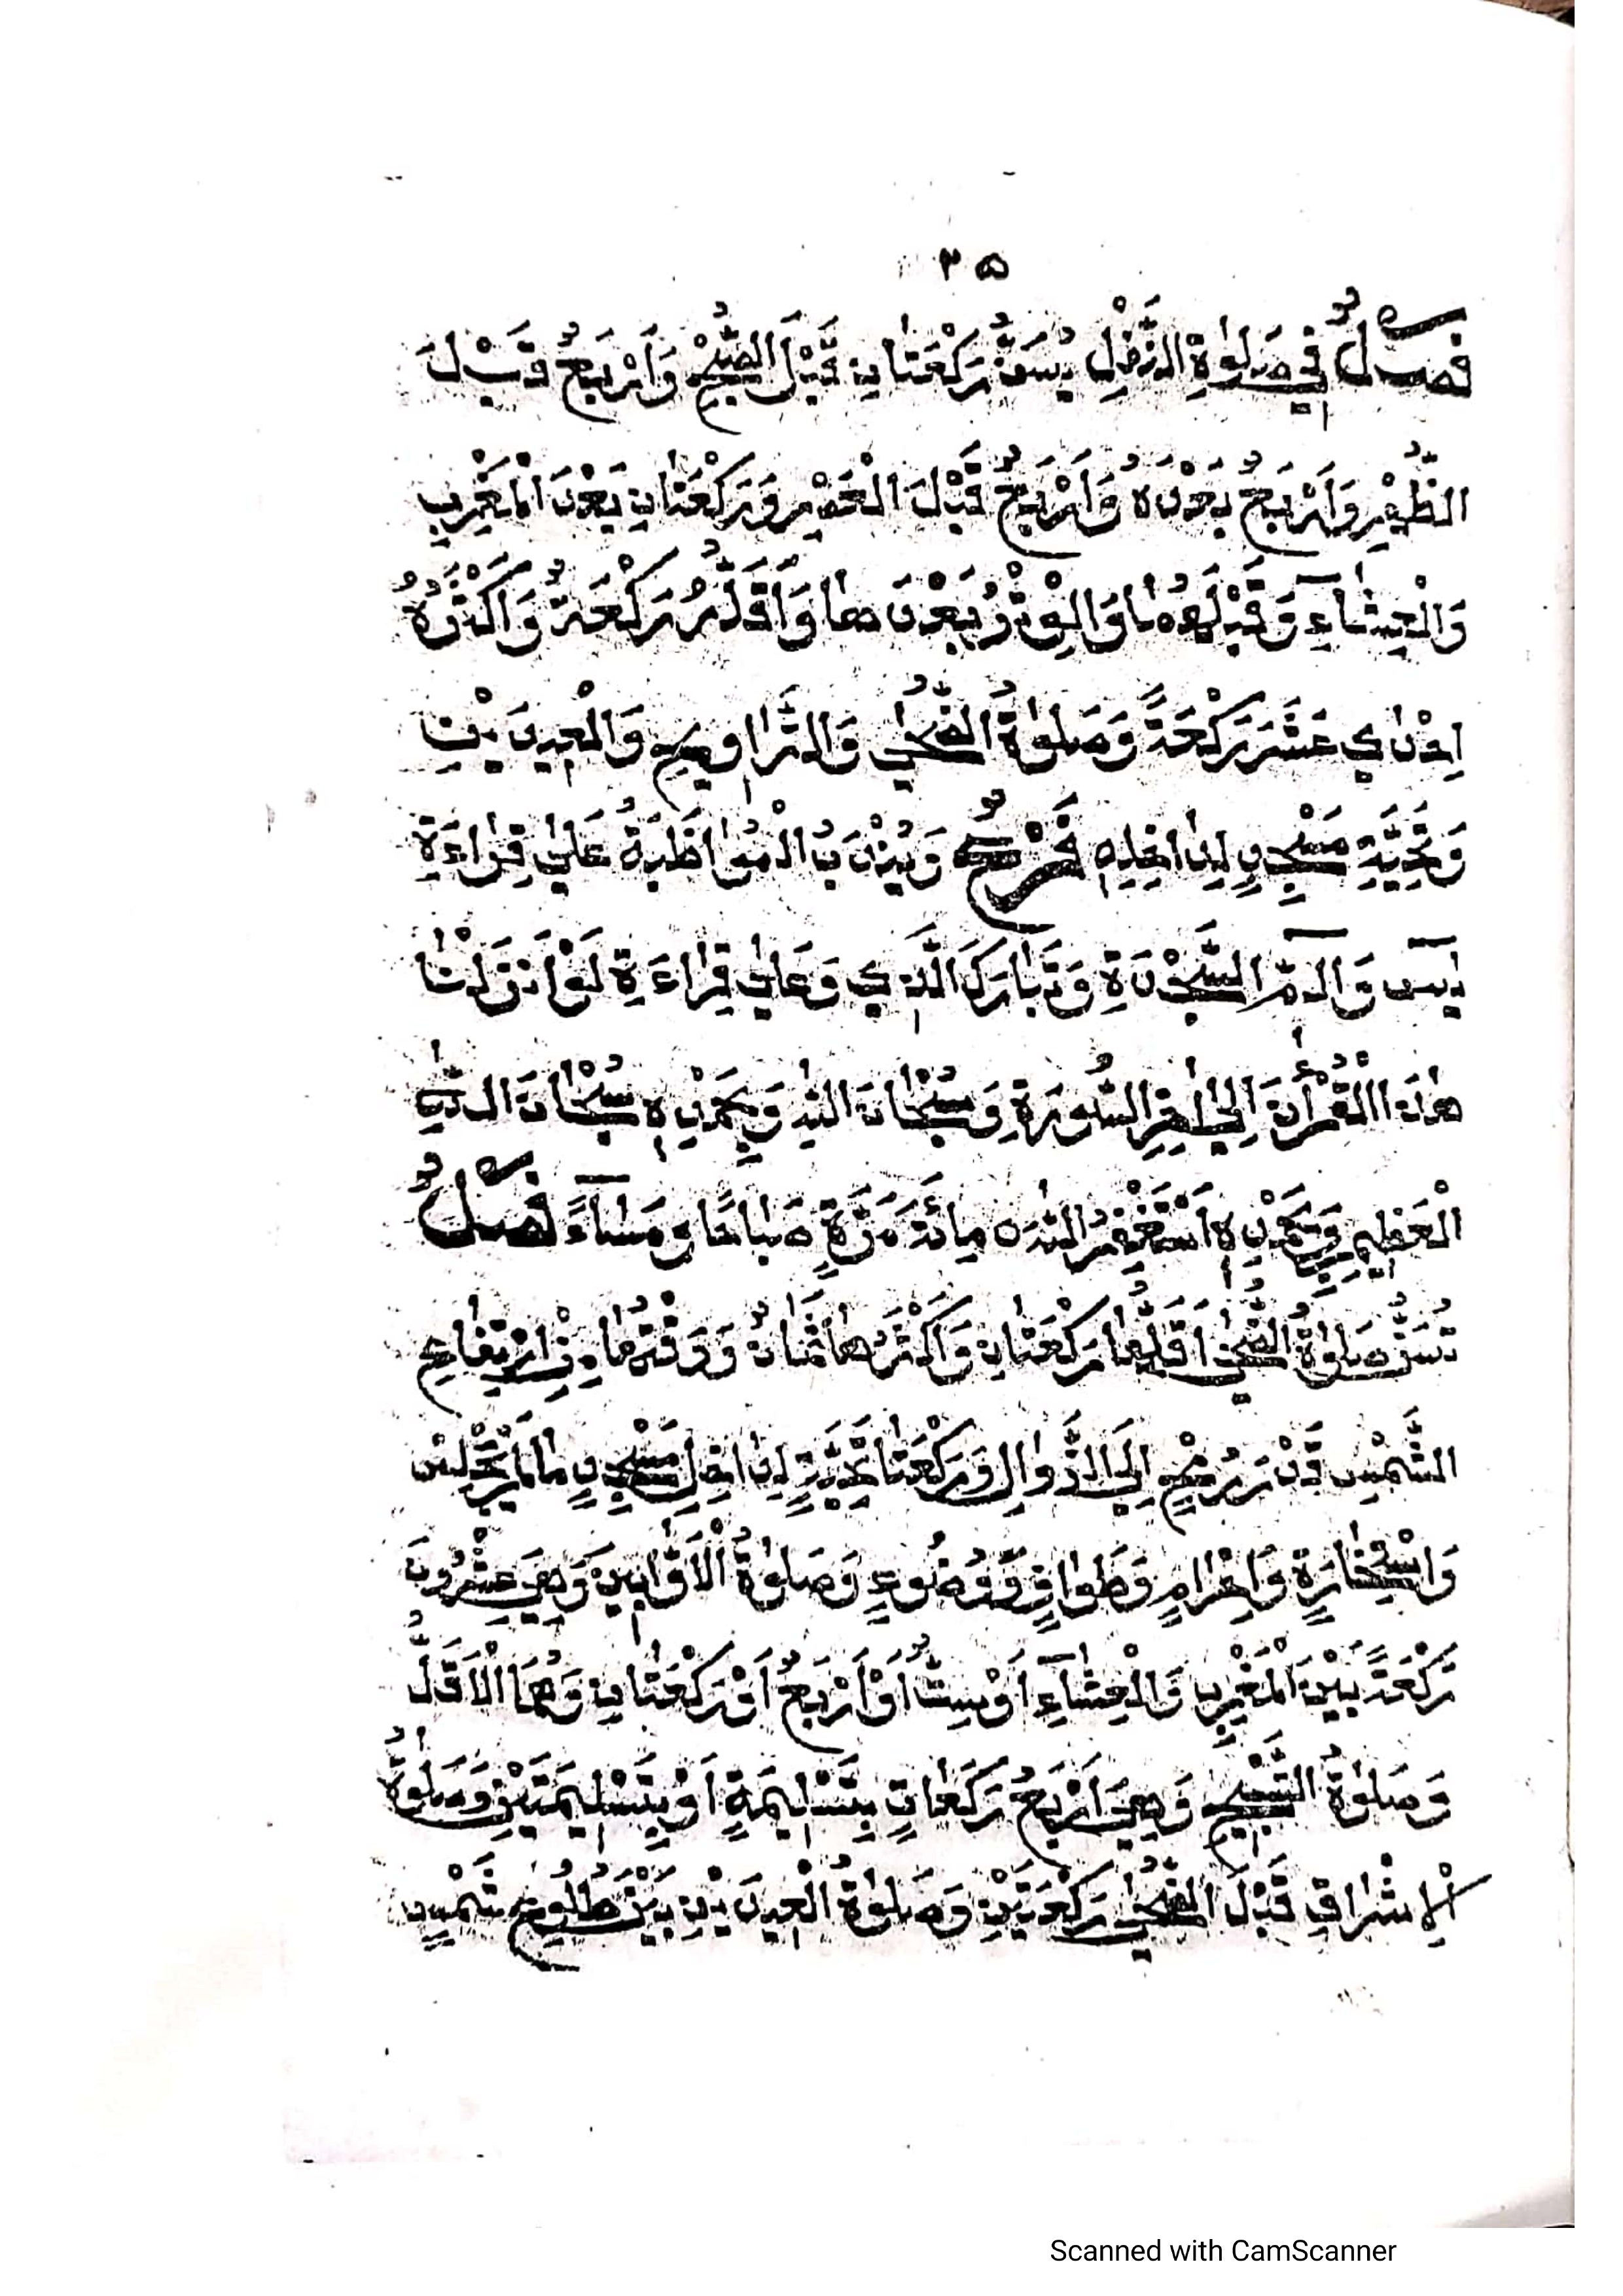 ٣٥
فَصْلٌ فِي صَلٰوةِ النَّفْلِ يُسَنُّ رَكْعَتٰانِ قَبْلَ الصُّبْحِ وَاَرْبَعٌ قَبْلَ
الظُّهْرِ وَاَرْبَعٌ بَعْدَهُ وَاَرْبَعٌ قَبْلَ الْعَصْرِ وَرَكْعَتٰانِ بَعْدَ الْمَغْرِبِ
وَالْعِشٰآءِ وَقَبْلَهُمٰا وَالْوِتْرُ بَعْدَهٰا وَاَقَلُّهُ رَكْعَةٌ وَاَكْثَرُهُ
اِحْدٰي عَشَرَ رَكْعَةً وَصَلٰوةُ الضُّحٰي وَالتَّرٰاوِيحِ وَالْعِيدَيْنِ
وَتَحِيَّةِ مَسْجِدٍ لِدٰاخِلِهِ فَرْعٌ وَيُنْدَبُ الْمُوٰاظَبَةُ عَلٰي قِرٰاءَةِ
يٰسٓ وَالٓمّٓ السَّجْدَةِ وَتَبٰارَكَ الَّذِي وَعَلٰي قِرٰاءَةِ لَوْ اَنْزَلْنٰا
هٰذَا الْقُرْأٰنَ اِلٰي اٰخِرِ السُّورَةِ وَسُبْحٰانَ اللّٰهِ وَبِحَمْدِهِ سُبْحٰانَ اللّٰهِ
الْعَظِيمِ وَبِحَمْدِهِ اَسْتَغْفِرُ اللّٰهَ مِائَةَ مَرَّةٍ صَبٰاحًا وَمَسٰآءً فَصْلٌ
تُسَنُّ صَلٰوةُ الضُّحٰي اَقَلُّهٰا رَكْعَتٰانِ وَاَكْثَرُهٰا ثَمٰانٌ وَوَقْتُهٰا مِنْ اِرْتِفٰاعِ
الشَّمْسِ قَدْرَ رُمْحٍ اِلَي الزَّوٰالِ وَرَكْعَتٰا تَحِيَّةٍ لِدٰاخِلِ مَسْجِدٍ مٰا لَمْ يَجْلِسْ
وَاسْتِخٰارَةٍ وَاِحْرٰامٍ وَطَوٰافٍ وَوُضُوءٍ وَصَلٰوةُ الْاَوّٰابِينَ وَهِيَ عِشْرُونَ
رَكْعَةً بَيْنَ الْمَغْرِبِ وَالْعِشٰآءِ اَوْ سِتٌّ اَوْ اَرْبَعٌ اَوْ رَكْعَتٰانِ وَهُمَا الْاَقَلُّ
وَصَلٰوةُ التَّسْبِيحِ وَهِيَ اَرْبَعُ رَكَعٰاتٍ بِتَسْلِيمَةٍ اَوْ بِتَسْلِيمَتَيْنِ وَصَلٰوةُ
الْاِشْرٰاقِ قَبْلَ الضُّحٰي رَكْعَتَيْنِ وَصَلٰوةُ الْعِيدَيْنِ بَيْنَ طُلُوعِ شَمْسٍ
Scanned with CamScanner